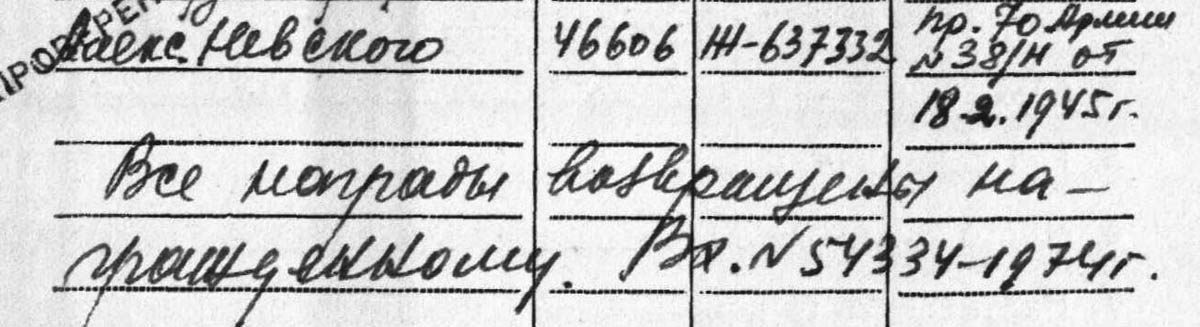 ПРОВЕРЕН
Алекс. Невского 46606 Ж-637332 пр. 70 Армии
№38/Н от
18.2.1945г.
Все награды возвращены на-
гражденному. Вх. №54334-1974г.